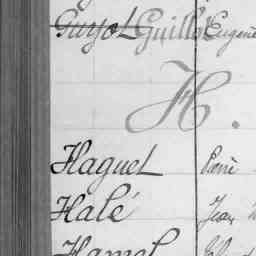 Guyot Guillô Eugène
H.
Haguet René
Halé Jean
Hamel